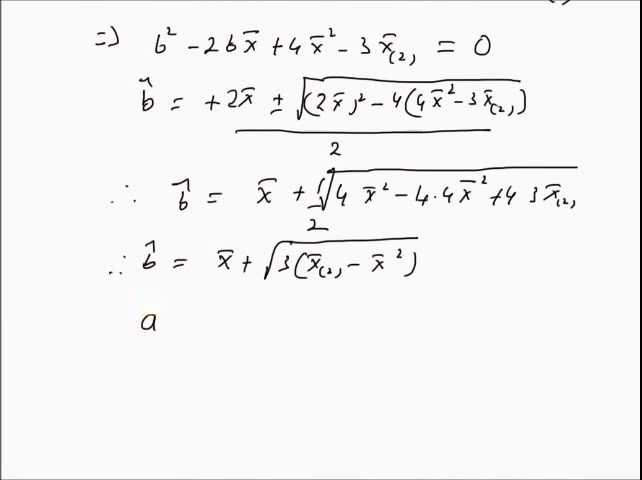 => b² - 2bx̄ + 4x̄² - 3x̄₍₂₎ = 0
b̂ = +2x̄ ± √((2x̄)² - 4(4x̄² - 3x̄₍₂₎)) / 2
∴ b̂ = x̄ + 1/2 √(4x̄² - 4·4x̄² + 4 3x̄₍₂₎)
∴ b̂ = x̄ + √(3(x̄₍₂₎ - x̄²))
a